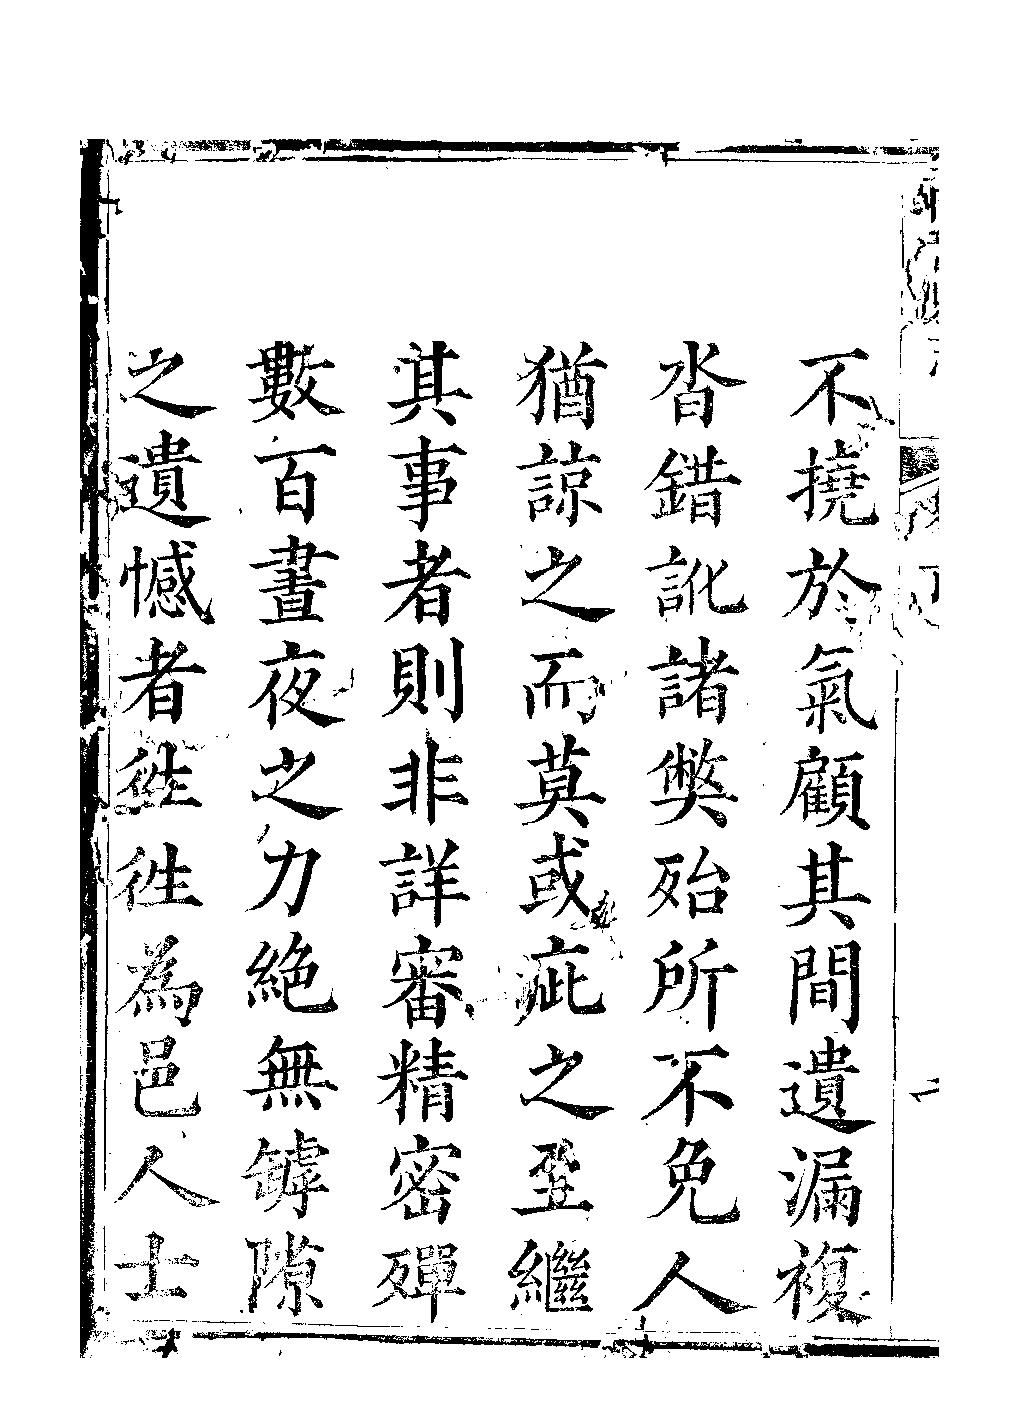 不撓於氣顧其間遺漏複
沓錯訛諸弊殆所不免人
猶諒之而莫或疵之至繼
其事者則非詳審精密殫
數百晝夜之力絕無罅隙
之遺憾者徃徃為邑人士